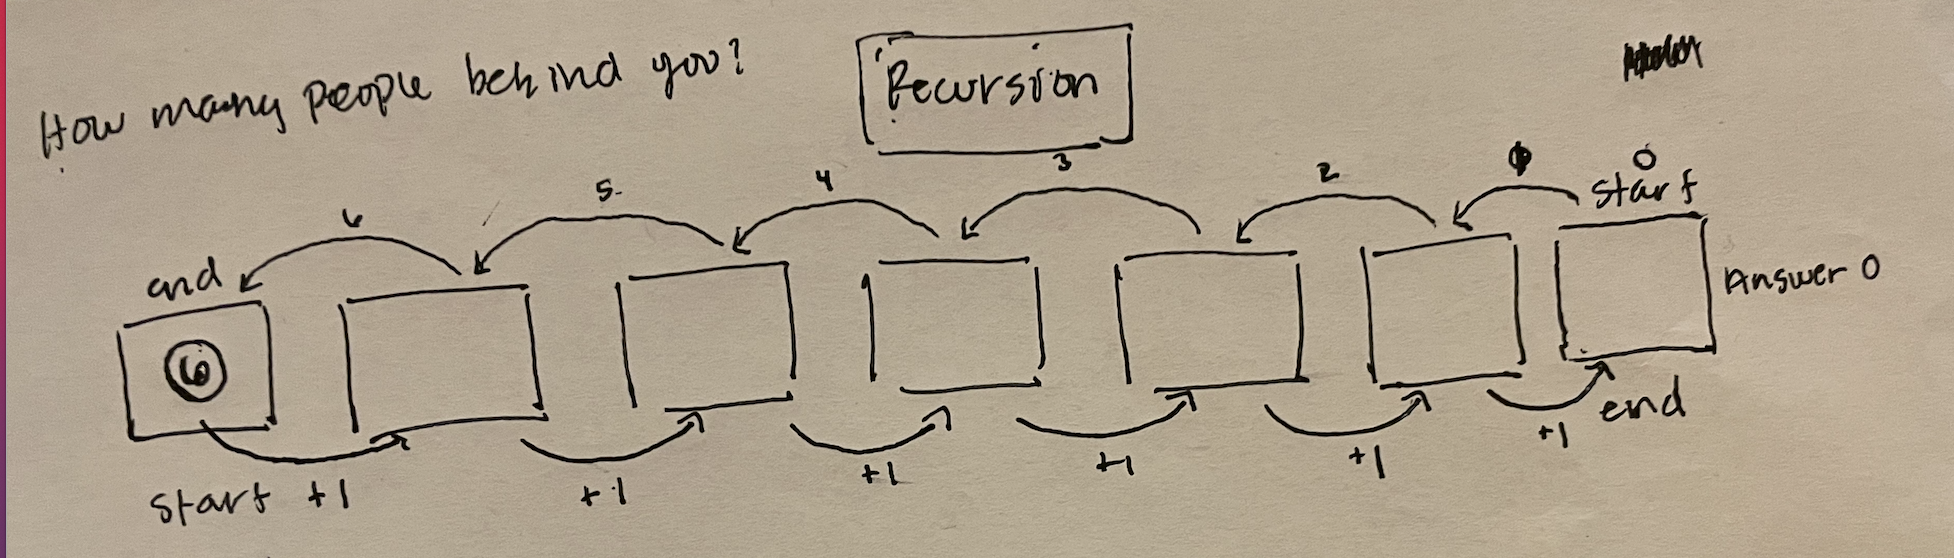 How many people behind you?
Recursion
6 5 4 3 2 0
start
end
6
Answer 0
end
start +1 +1 +1 +1 +1 +1